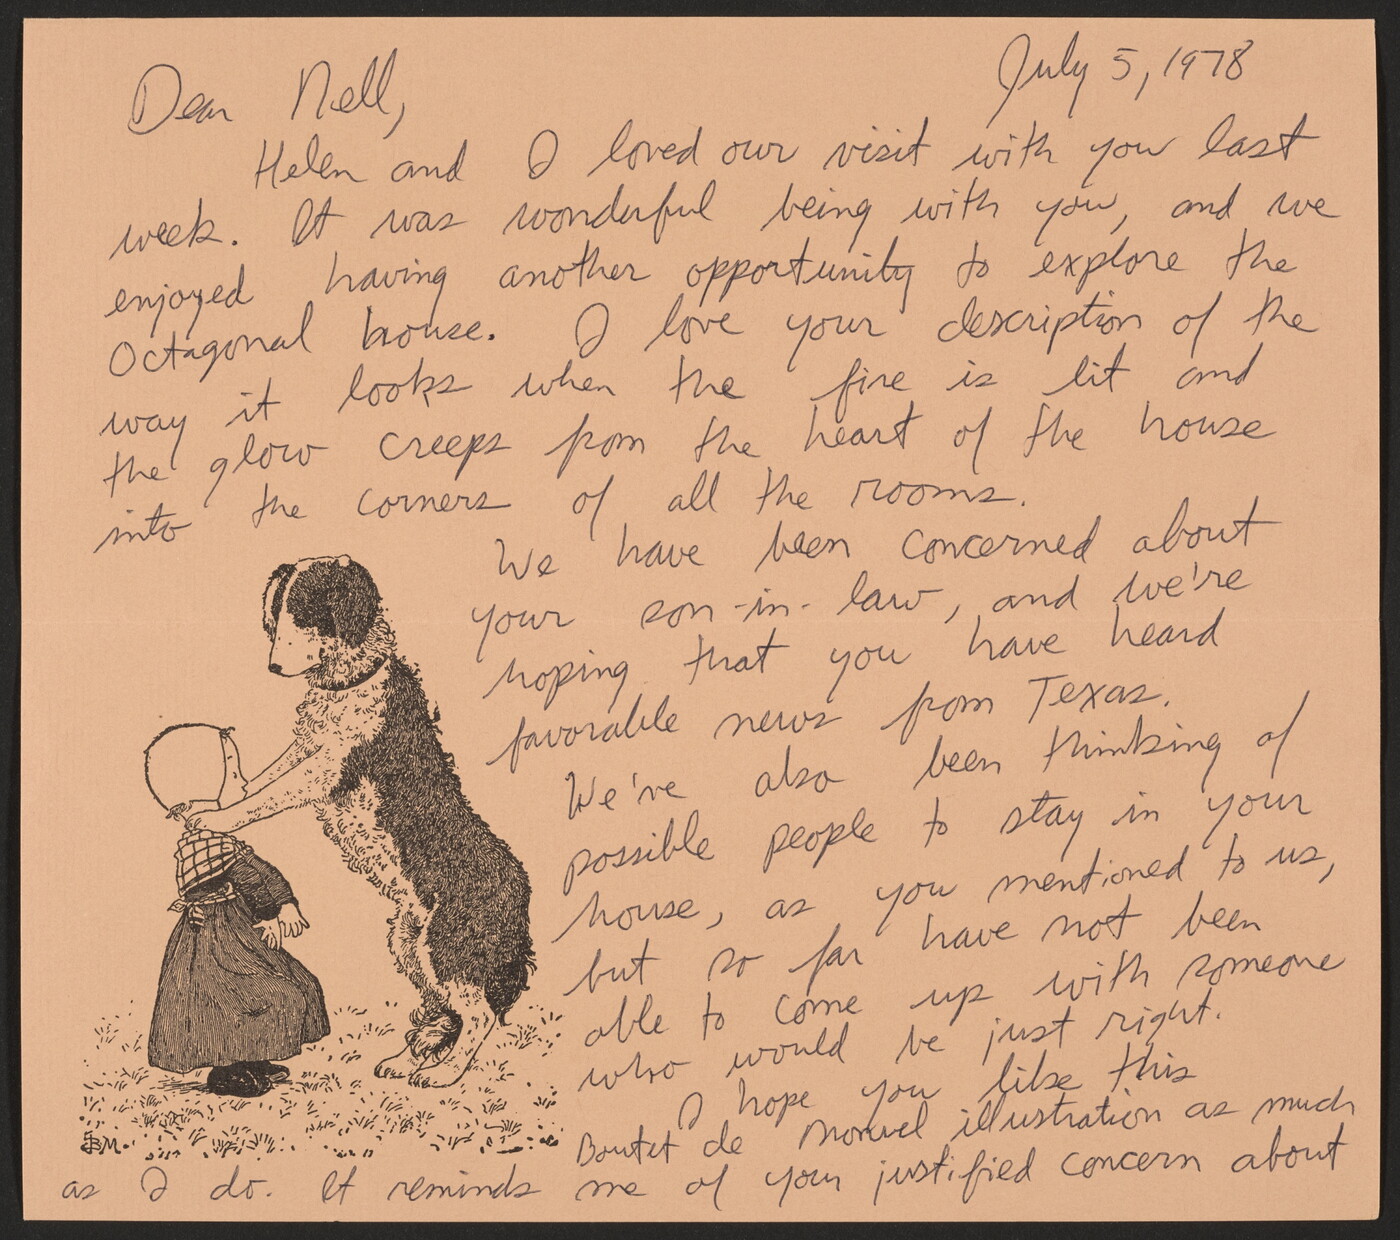 July 5, 1978
Dear Nell,
Helen and I loved our visit with you last
week. It was wonderful being with you, and we
enjoyed having another opportunity to explore the
Octagonal house. I love your description of the
way it looks when the fire is lit and
the glow creeps from the heart of the house
into the corners of all the rooms.
We have been concerned about
your son-in-law, and we're
hoping that you have heard
favorable news from Texas.
We've also been thinking of
possible people to stay in your
house, as you mentioned to us,
but so far have not been
able to come up with someone
who would be just right.
I hope you like this
Boutet de Monvel illustration as much
as I do. It reminds me of your justified concern about
BM